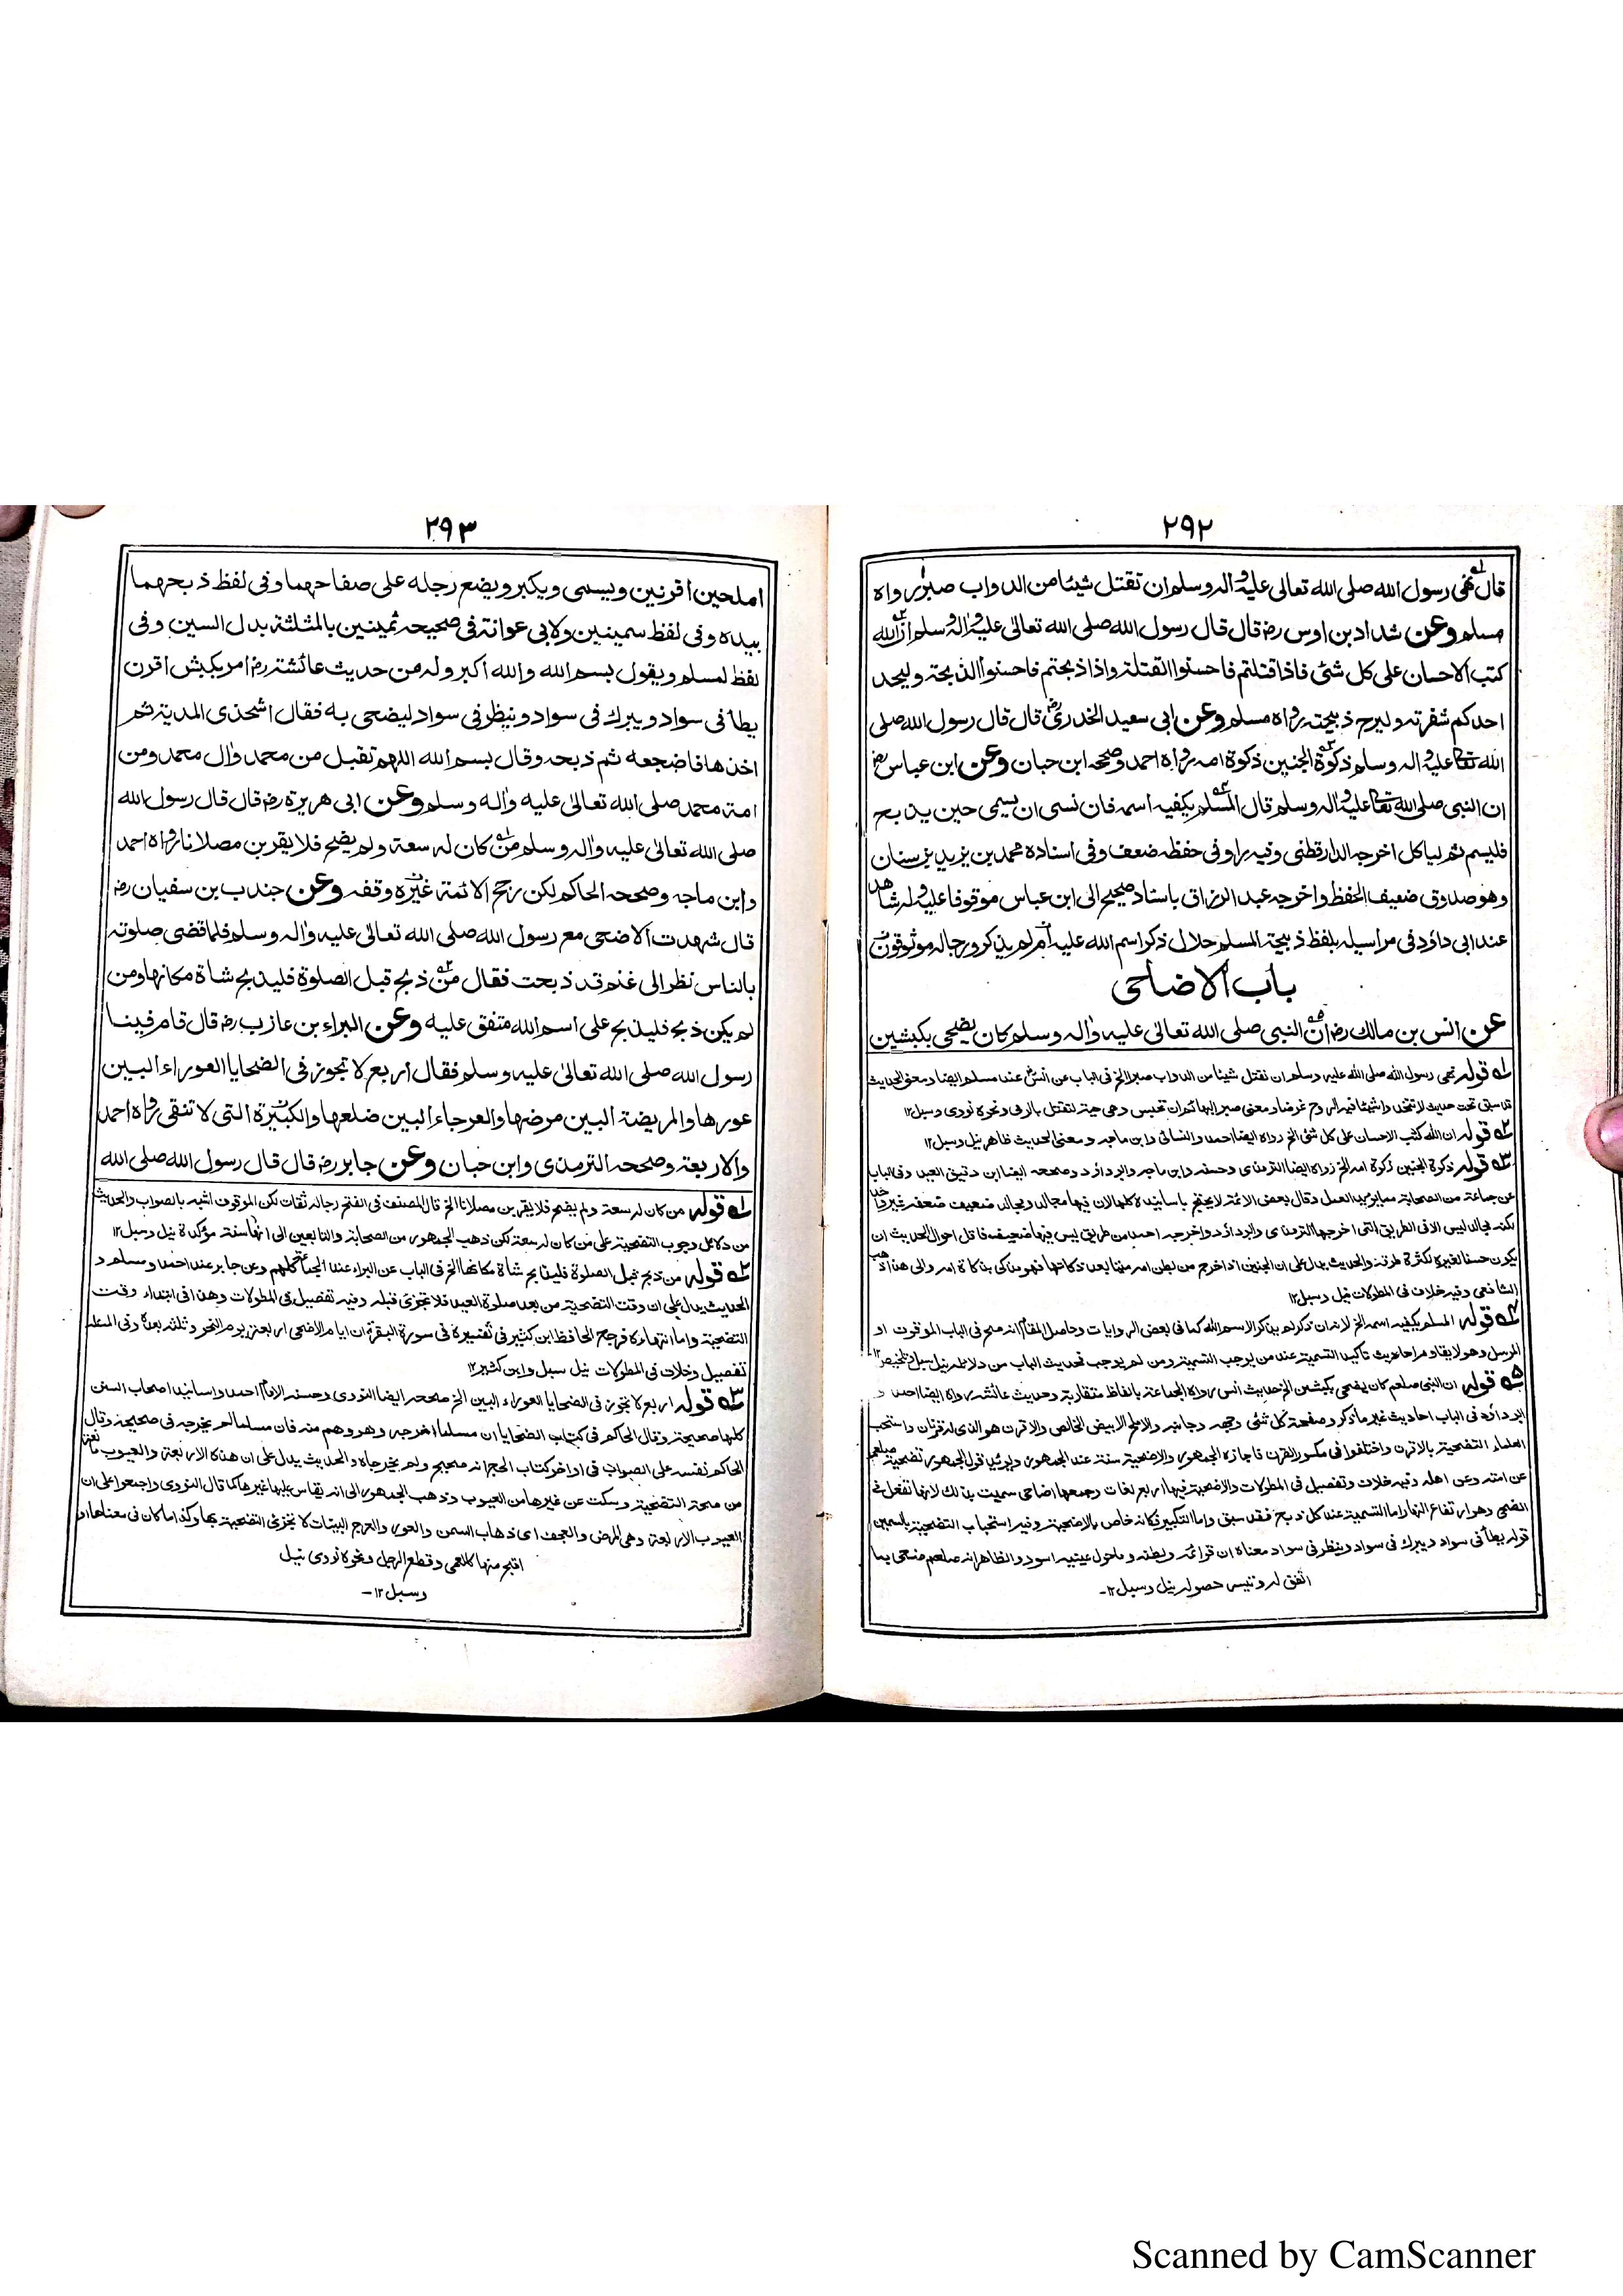 ٢٩٢
قال نهى رسول الله صلى الله تعالى عليه وآله وسلم ان تقتل شيئا من الدواب صبرا رواه
مسلم وعن شداد بن اوس رض قال قال رسول الله صلى الله تعالى عليه وآله وسلم ان الله
كتب الاحسان على كل شئ فاذا قتلتم فاحسنوا القتلة واذا ذبحتم فاحسنوا الذبحة وليحد
احدكم شفرته وليرح ذبيحته رواه مسلم وعن ابي سعيد الخدري رض قال قال رسول الله صلى
الله تعالى عليه وآله وسلم ذكوة الجنين ذكوة امه رواه احمد وصححه ابن حبان وعن ابن عباس رض
ان النبي صلى الله تعالى عليه وآله وسلم قال المسلم يكفيه اسمه فان نسى ان يسمى حين يذبح
فليسم ثم لياكل اخرجه الدارقطنى وفيه راو فى حفظه ضعف وفى اسناده محمد بن يزيد بن سنان
وهو صدوق ضعيف الحفظ واخرجه عبد الرزاق باسناد صحيح الى ابن عباس موقوفا عليه وله شاهد
عند ابى داؤد فى مراسيله بلفظ ذبيحة المسلم حلال ذكر اسم الله عليه أم لم يذكر ورجاله موثوقون
باب الاضاحى
عن انس بن مالك رض ان النبي صلى الله تعالى عليه وآله وسلم كان يضحى بكبشين
له قوله نهى رسول الله صلى الله عليه وسلم ان تقتل شيئا من الدواب صبرا الخ فى الباب عن انس عند مسلم ايضا ومعنى الحديث
قد سبق تحت حديث لا تتخذوا شيئا فيه الروح غرضا ومعنى صبر البهائم ان تحبس وهى حية لتقتل بالرمى ونحوه نووى وسبل ١٢
٢ه قوله ان الله كتب الاحسان على كل شئ الخ رواه ايضا احمد والنسائى وابن ماجه ومعنى الحديث ظاهر نيل وسبل ١٢
٣ه قوله ذكوة الجنين ذكوة امه الخ رواه ايضا الترمذى وحسنه وابن ماجه وابو داؤد وصححه ايضا ابن دقيق العيد وفى الباب
عن جماعة من الصحابة مما يؤيد العمل وقال بعض الائمة لا يحتج باسانيده كلها لان فيها مجالد ومجالد ضعيف
لكنه مجالد ليس الا فى الطريق التى اخرجها الترمذى وابو داؤد واخرجه احمد من طريق ليس فيها ضعيف فاقل احوال الحديث ان
يكون حسنا لغيره لكثرة طرقه والحديث يدل على ان الجنين اذا خرج من بطن امه ميتا بعد ذكاتها فهو مذكى بذكاة امه والى هذا ذهب
الشافعى وفيه خلاف فى المطولات نيل وسبل ١٢
٤ه قوله المسلم يكفيه اسمه الخ
المرسل وهو لا يقاوم احاديث تأكيد التسمية عند من يوجب التسمية ومن لم يوجب فحديث الباب من دلائله نيل سبل وتلخيص ١٢
٥ه قوله ان النبي صلعم كان يضحى بكبشين الخ حديث انس رواه الجماعة بالفاظ متقاربة وحديث عائشة رواه ايضا احمد و
ابو داؤد فى الباب احاديث غير ما ذكر وصفحة كل شئ وجهه وجانبه والاملح الابيض الخالص والاقرن هو الذى له قرنان واستحب
العلماء التضحية بالاقرن واختلفوا فى مكسور القرن فاجازه الجمهور والاضحية سنة عند الجمهور ويؤيد قول الجمهور تضحيته صلعم
عن امته وعن اهله وفيه خلاف وتفصيل فى المطولات والاضحية فيها اربع لغات وجمعها اضاحى سميت بذلك لانها تفعل فى
الضحى وهو ارتفاع النهار اما التسمية عند كل ذبح فقد سبق واما التكبير فكانه خاص بالاضحية وفيه استحباب التضحية بالسمين
قوله يطأ فى سواد ويبرك فى سواد وينظر فى سواد معناه ان قوائمه وبطنه وما حول عينيه اسود والظاهر انه صلعم ضحى بما
اتفق له وتيسر حصوله نيل وسبل ١٢-
٢٩٣
املحين اقرنين ويسمى ويكبر ويضع رجله على صفاحهما وفى لفظ ذبحهما
بيده وفى لفظ سمينين ولابى عوانة فى صحيحه ثمينين بالمثلثة بدل السين وفى
لفظ لمسلم ويقول بسم الله والله أكبر وله من حديث عائشة رض امر بكبش اقرن
يطأ فى سواد ويبرك فى سواد وينظر فى سواد ليضحى به فقال اشحذى المدية ثم
اخذها فاضجعه ثم ذبحه وقال بسم الله اللهم تقبل من محمد وآل محمد ومن
امة محمد صلى الله تعالى عليه وآله وسلم وعن ابى هريرة رض قال قال رسول الله
صلى الله تعالى عليه وآله وسلم من كان له سعة ولم يضح فلا يقربن مصلانا رواه احمد
وابن ماجه وصححه الحاكم لكن رجح الائمة غيره وقفه وعن جندب بن سفيان رض
قال شهدت الاضحى مع رسول الله صلى الله تعالى عليه وآله وسلم فلما قضى صلوته
بالناس نظر الى غنم قد ذبحت فقال من ذبح قبل الصلوة فليذبح شاة مكانها ومن
لم يكن ذبح فليذبح على اسم الله متفق عليه وعن البراء بن عازب رض قال قام فينا
رسول الله صلى الله تعالى عليه وسلم فقال اربع لا تجوز فى الضحايا العوراء البين
عورها والمريضة البين مرضها والعرجاء البين ضلعها والكبيرة التى لا تنقى رواه احمد
والاربعة وصححه الترمذى وابن حبان وعن جابر رض قال قال رسول الله صلى الله
له قوله من كان له سعة ولم يضح فلا يقربن مصلانا الخ قال المصنف فى الفتح رجاله ثقات لكن الموقوف اشبه بالصواب والحديث
من دلائل وجوب التضحية على من كان له سعة لكن ذهب الجمهور من الصحابة والتابعين الى انها سنة مؤكدة نيل وسبل ١٢
٢ه قوله من ذبح قبل الصلوة فليذبح شاة مكانها الخ فى الباب عن البراء عند الجماعة كلهم وعن جابر عند احمد ومسلم و
الحديث يدل على ان وقت التضحية من بعد صلوة العيد فلا تجزئ قبله وفيه تفصيل فى المطولات وهذا فى ابتداء وقت
التضحية واما انتهاءه فرجح الحافظ ابن كثير فى تفسيره فى سورة البقرة ان ايام الاضحى اربعة يوم النحر وثلثة بعده وفى المسئلة
تفصيل وخلاف فى المطولات نيل سبل وابن كثير ١٢
٣ه قوله اربع لا تجوز فى الضحايا العوراء البين الخ صححه ايضا النووى وحسنه الامام احمد واسانيد اصحاب السنن
كلها صحيحة وقال الحاكم فى كتاب الضحايا ان مسلما اخرجه وهو وهم منه فان مسلما لم يخرجه فى صحيحه وقال
الحاكم نفسه على الصواب فى اواخر كتاب الحج انه صحيح ولم يخرجاه والحديث يدل على ان هذه الاربعة والعيوب مانعة
من صحة التضحية وسكت عن غيرها من العيوب وذهب الجمهور الى انه يقاس عليها غيرها كما قال النووى واجمعوا على ان
العيوب الاربعة وهى المرض والعجف اى ذهاب السمن والعور والعرج البينات لا تجزئ التضحية بها وكذا ما كان فى معناها او
اقبح منها كالعمى وقطع الرجل ونحوه نووى نيل
وسبل ١٢-
Scanned by CamScanner